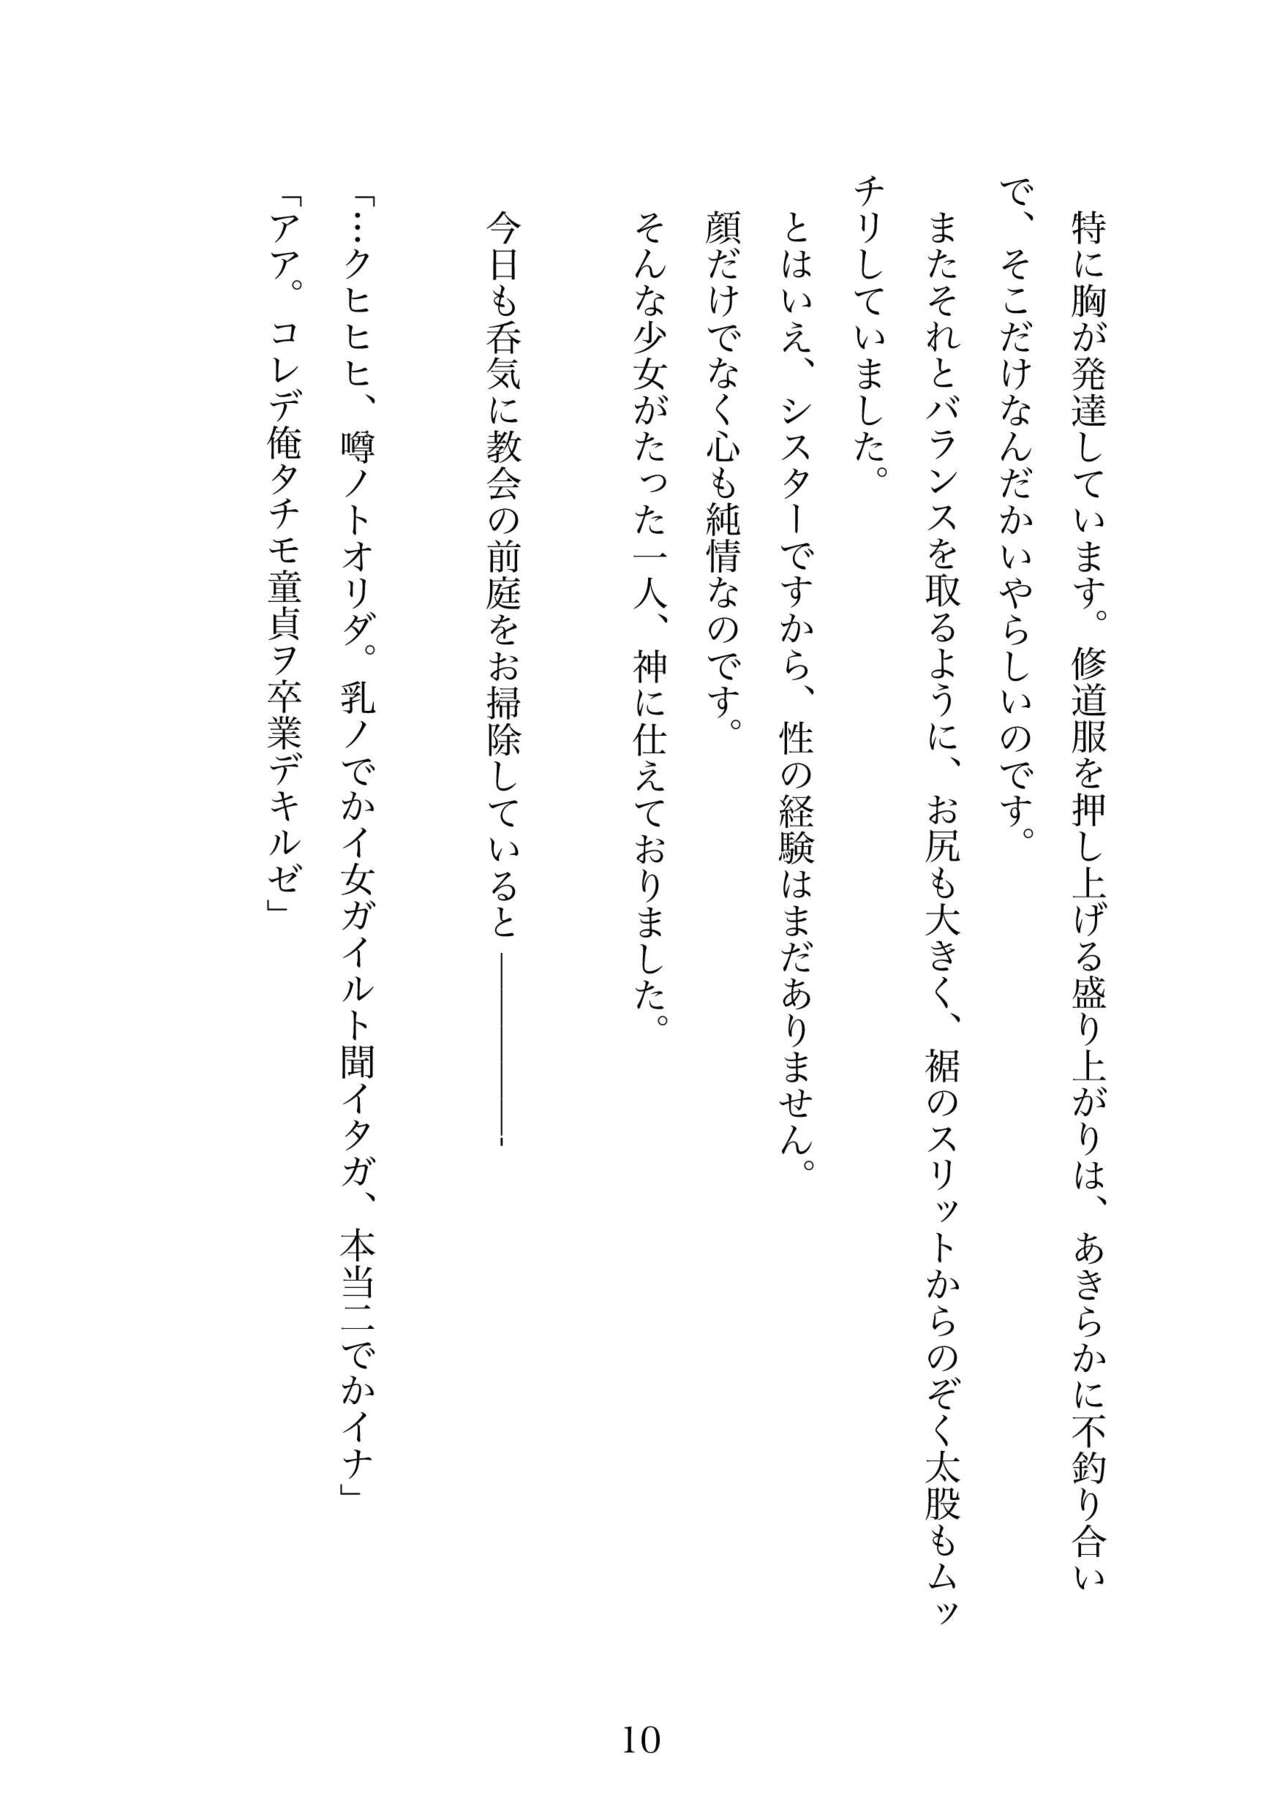 特に胸が発達しています。修道服を押し上げる盛り上がりは、あきらかに不釣り合い
で、そこだけなんだかいやらしいのです。
またそれとバランスを取るように、お尻も大きく、裾のスリットからのぞく太股もムッ
チリしていました。
とはいえ、シスターですから、性の経験はまだありません。
顔だけでなく心も純情なのです。
そんな少女がたった一人、神に仕えておりました。
今日も呑気に教会の前庭をお掃除していると―――――
「…クヒヒヒ、噂ノトオリダ。乳ノでかイ女ガイルト聞イタガ、本当ニでかイナ」
「アア。コレデ俺タチモ童貞ヲ卒業デキルゼ」
10